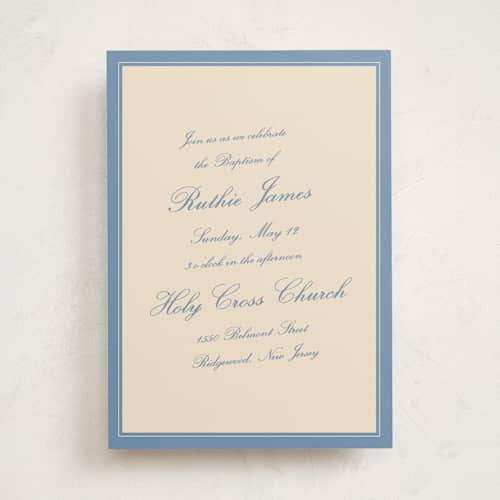 Join us as we celebrate
the Baptism of
Ruthie James
Sunday, May 12
3 o'clock in the afternoon
Holy Cross Church
1550 Belmont Street
Ridgewood, New Jersey